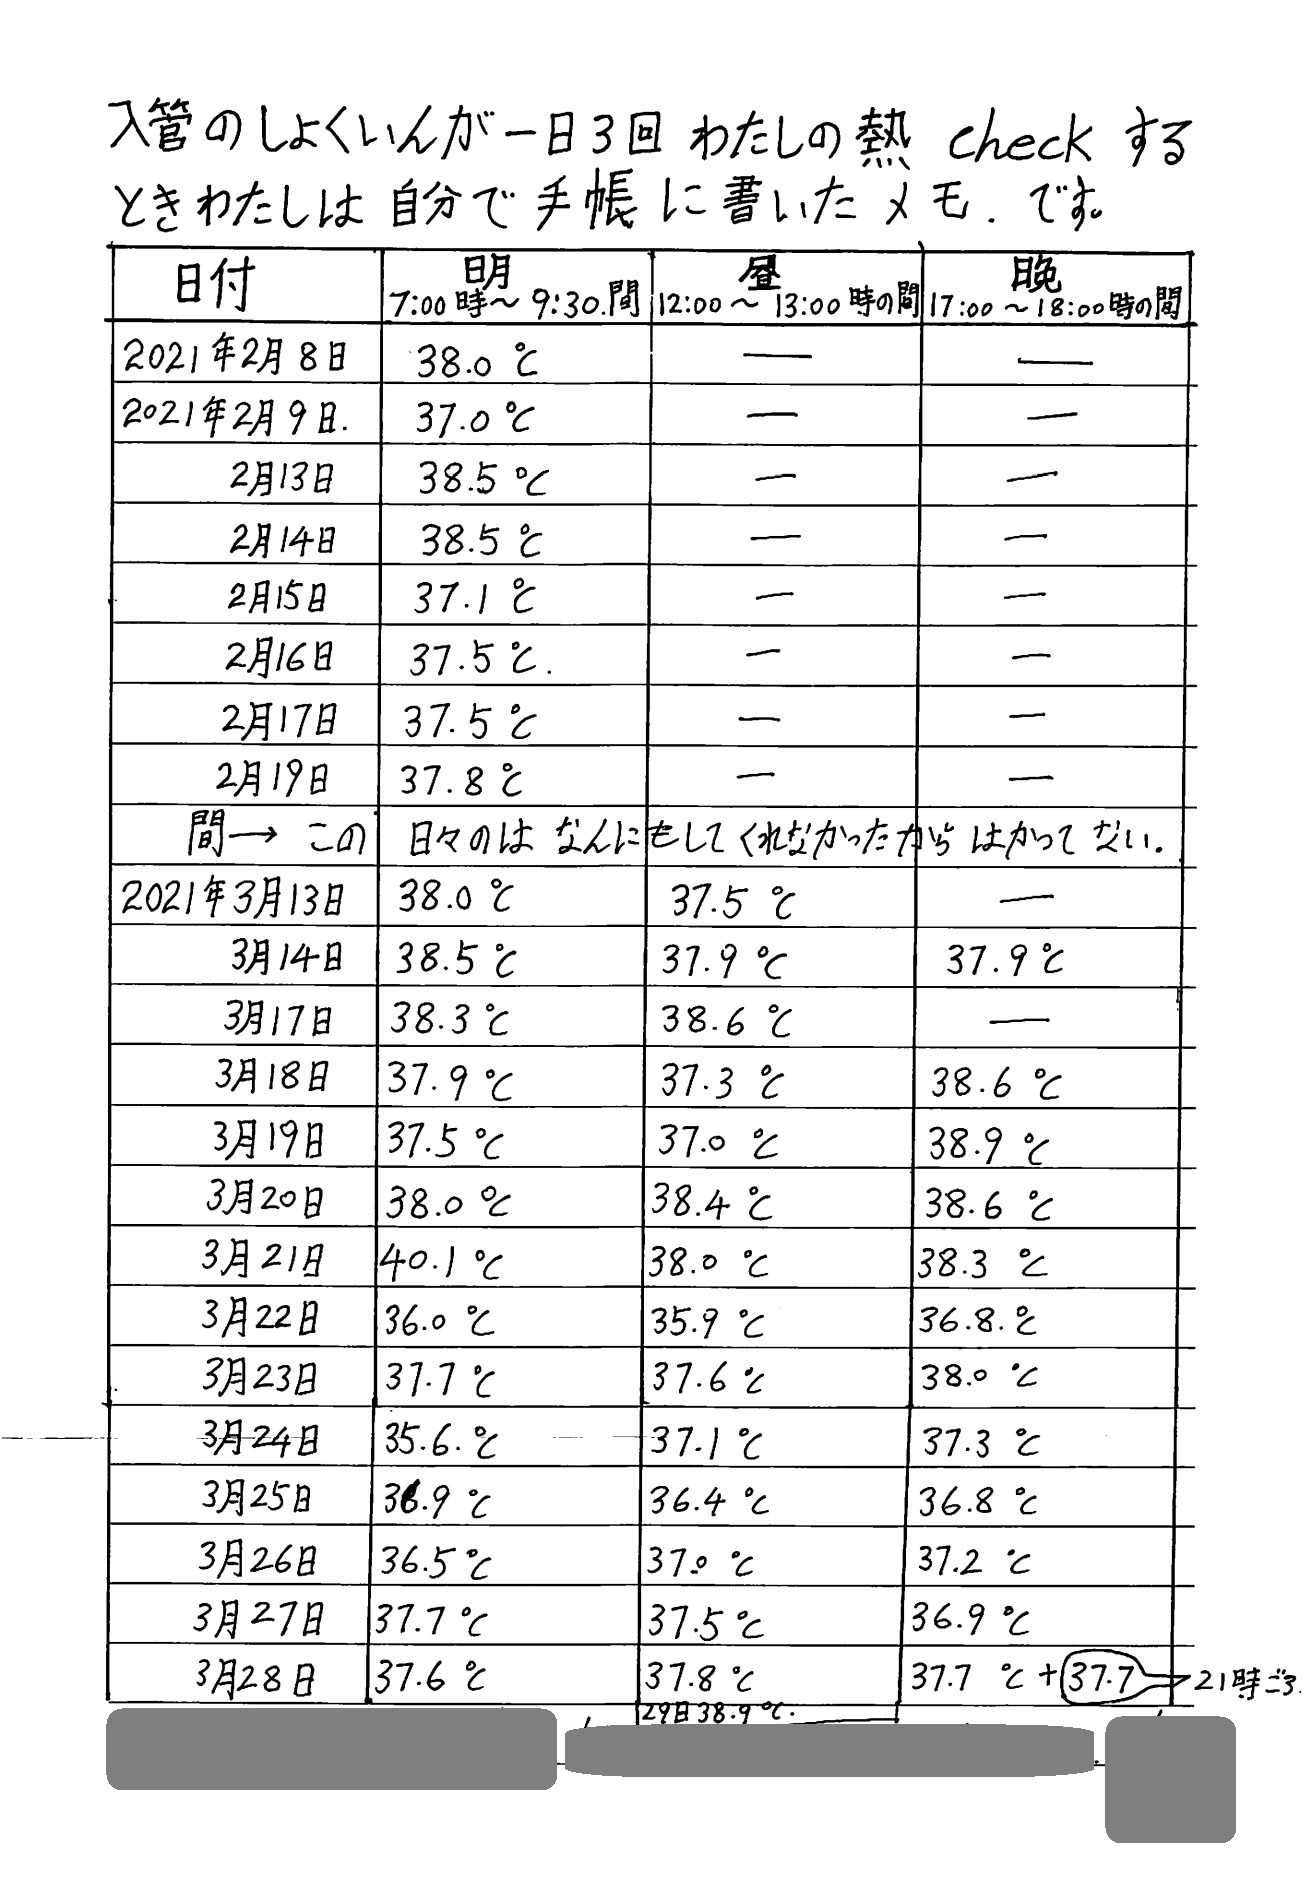 入管のしょくいんが一日3回 わたしの熱 check する
ときわたしは 自分で 手帳 に 書いた メモ. です。
日付 明 昼 晩
7:00時～9:30.間 12:00～13:00時の間 17:00～18:00時の間
2021年2月8日 38.0℃ — —
2021年2月9日. 37.0℃ — —
2月13日 38.5℃ — —
2月14日 38.5℃ — —
2月15日 37.1℃ — —
2月16日 37.5℃. — —
2月17日 37.5℃ — —
2月19日 37.8℃ — —
間→ この 日々のは なんにもして くれなかったから はかって ない.
2021年3月13日 38.0℃ 37.5℃ —
3月14日 38.5℃ 37.9℃ 37.9℃
3月17日 38.3℃ 38.6℃ —
3月18日 37.9℃ 37.3℃ 38.6℃
3月19日 37.5℃ 37.0℃ 38.9℃
3月20日 38.0℃ 38.4℃ 38.6℃
3月21日 40.1℃ 38.0℃ 38.3℃
3月22日 36.0℃ 35.9℃ 36.8.℃
3月23日 37.7℃ 37.6℃ 38.0℃
3月24日 35.6.℃ 37.1℃ 37.3℃
3月25日 36.9℃ 36.4℃ 36.8℃
3月26日 36.5℃ 37.0℃ 37.2℃
3月27日 37.7℃ 37.5℃ 36.9℃
3月28日 37.6℃ 37.8℃ 37.7℃+37.7 21時ごろ.
29日38.9℃.